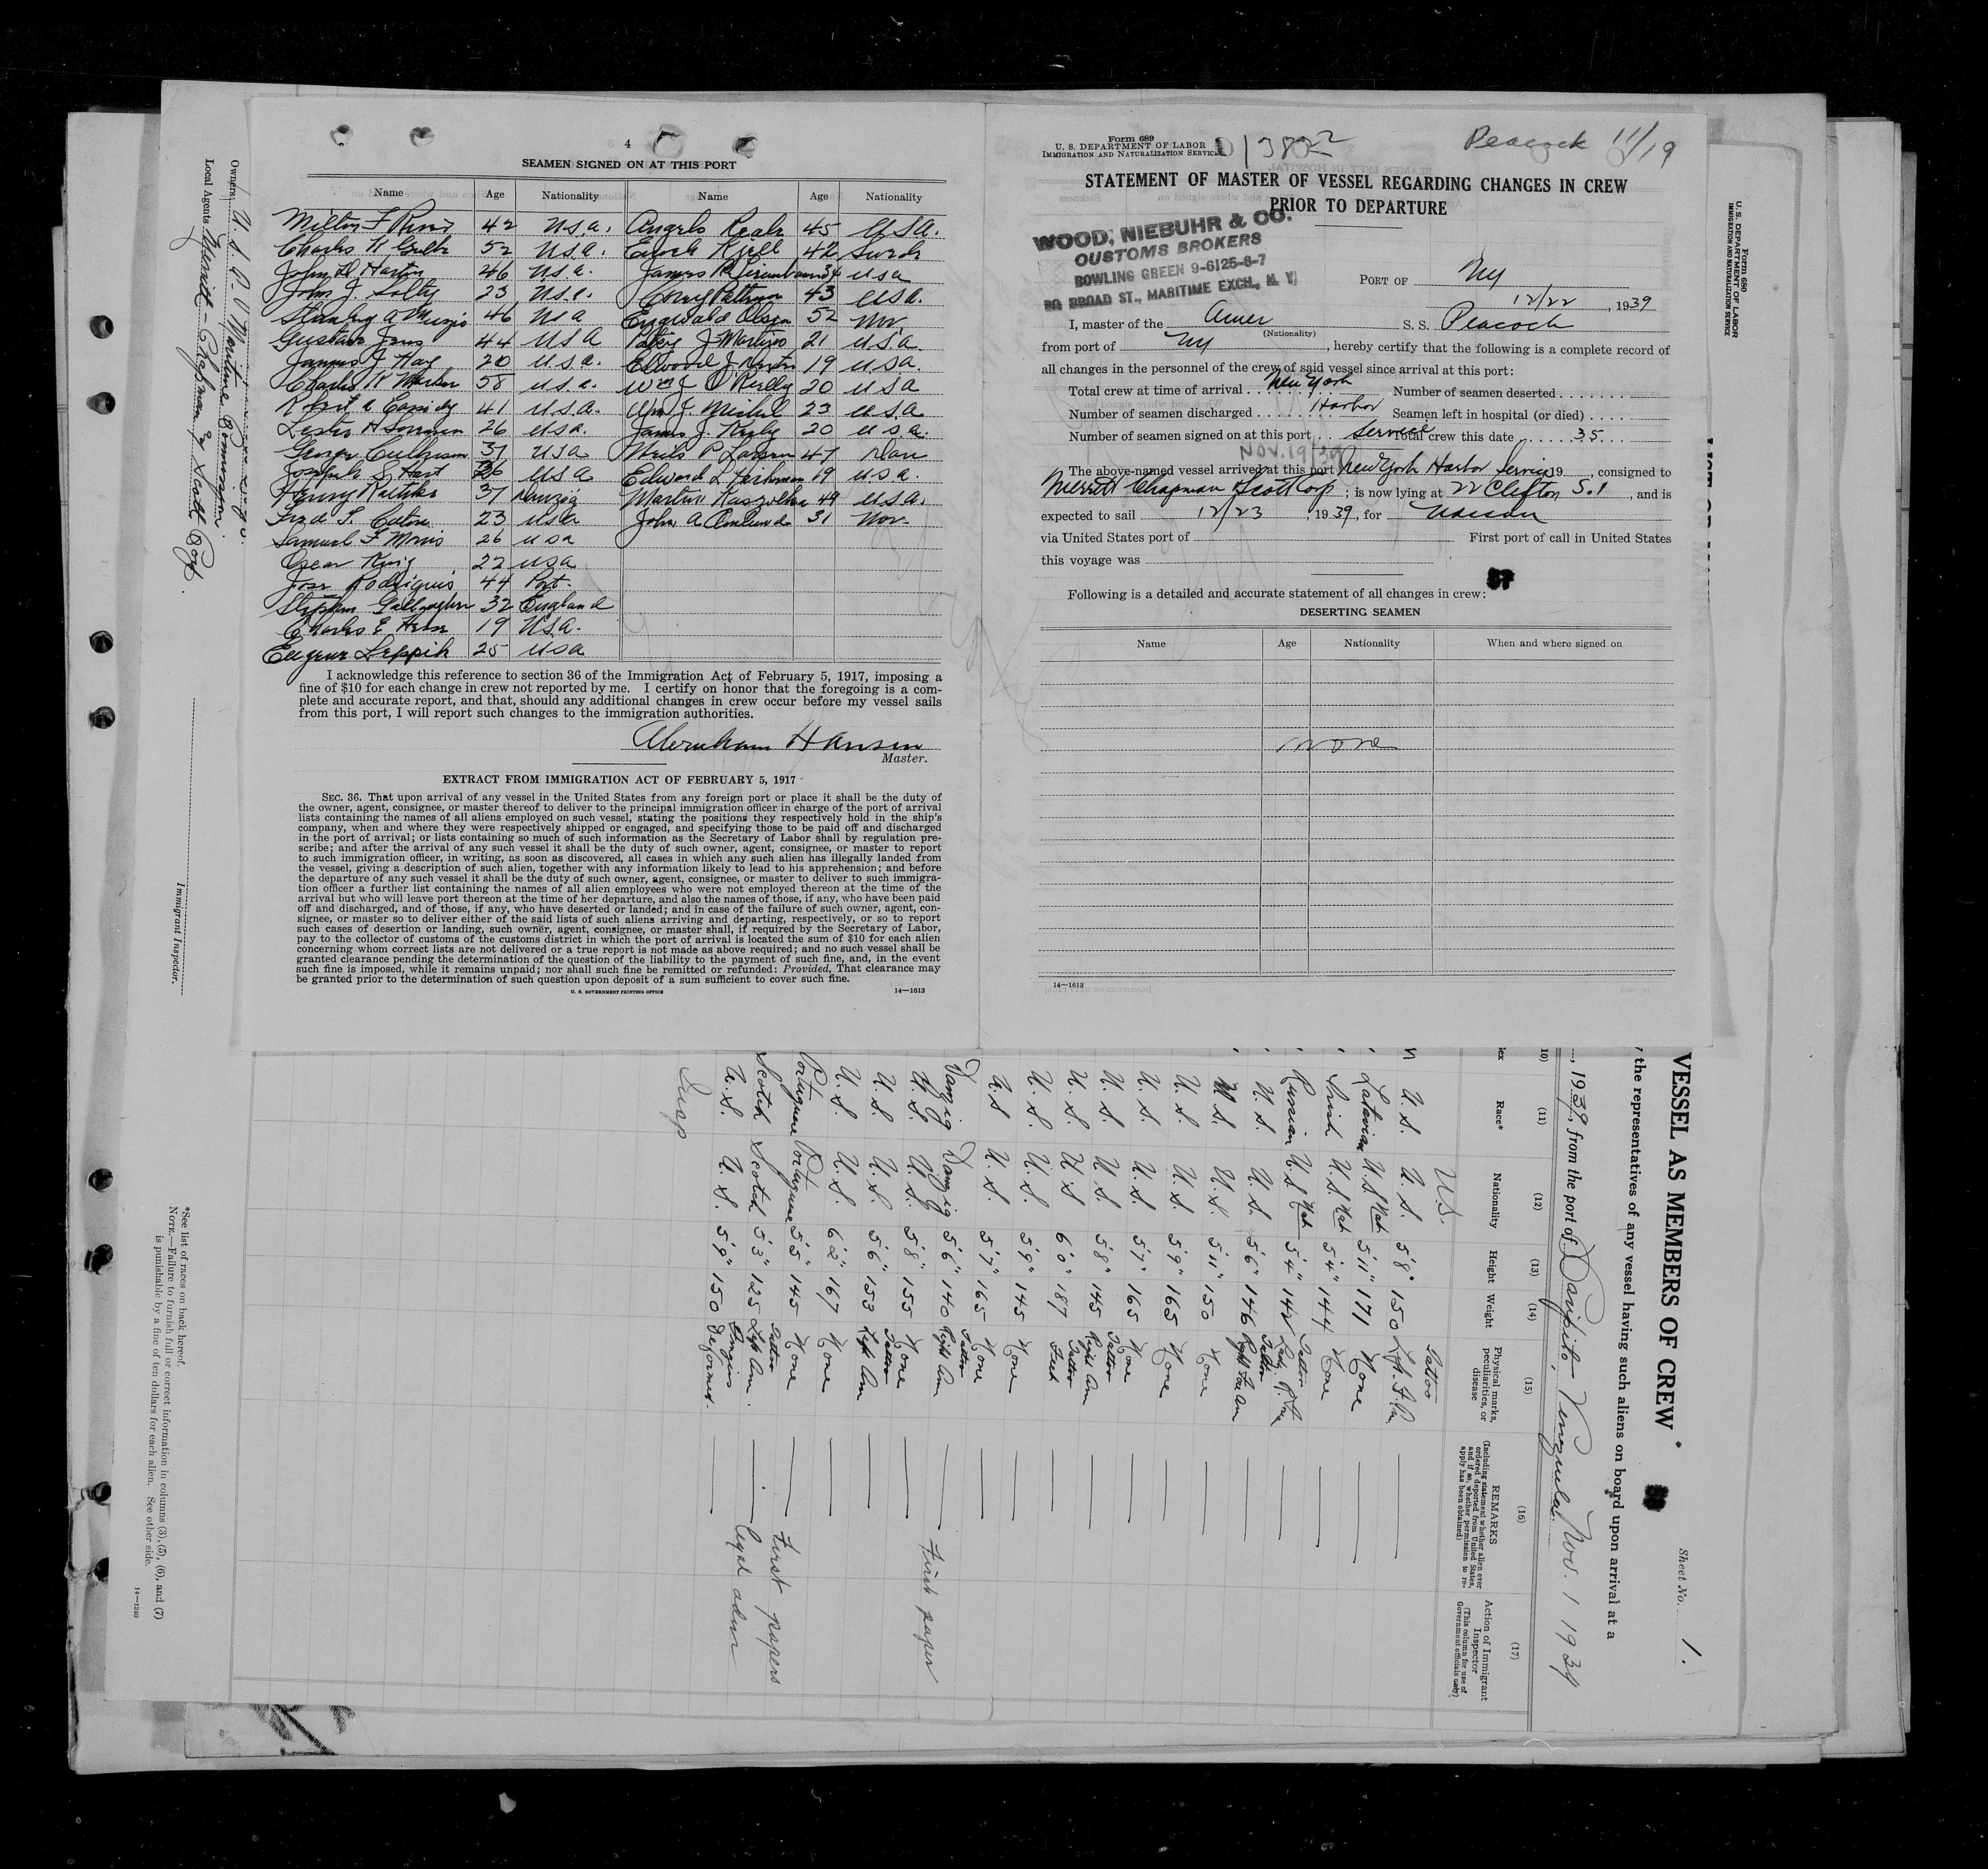 4
SEAMEN SIGNED ON AT THIS PORT
Name Age Nationality Name Age Nationality
Milton F 42 U.S.A. Angelo 45 U.S.A.
Charles R 52 U.S.A. Enoch Kjell 42 Swede
John D Martin 46 U.S.A. James R 34 USA
John J. Solty 23 U.S.A. 43 USA.
Stanley A 46 USA Olsen 52 Nor.
Gustavo 44 USA J Martino 21 U.S.A
James J Hay 20 U.S.A. Ellwood J 19 U.S.A.
Charles R 58 U.S.A. Wm J O'Reilly 20 USA
Robert A Cassidy 41 U.S.A. Wm J. Michel 23 USA
Lester H 26 USA. James J. 20 U.S.A.
George 37 USA Niels P Larsen 47 Dan
Joseph S Hart 36 USA Edward L 19 U.S.A.
Henry 37 Danzig Martin 49 U.S.A.
Fred S. 23 USA John A 31 Nor.
Samuel F Morris 26 USA
Oscar King 22 USA
Jose Rodrigues 44 Port.
Stephen Gallagher 32 England
Charles E 19 U.S.A.
Eugene Leppik 25 USA
I acknowledge this reference to section 36 of the Immigration Act of February 5, 1917, imposing a
fine of $10 for each change in crew not reported by me. I certify on honor that the foregoing is a com-
plete and accurate report, and that, should any additional changes in crew occur before my vessel sails
from this port, I will report such changes to the immigration authorities.
Abraham Hansen
Master.
EXTRACT FROM IMMIGRATION ACT OF FEBRUARY 5, 1917
SEC. 36. That upon arrival of any vessel in the United States from any foreign port or place it shall be the duty of
the owner, agent, consignee, or master thereof to deliver to the principal immigration officer in charge of the port of arrival
lists containing the names of all aliens employed on such vessel, stating the positions they respectively hold in the ship's
company, when and where they were respectively shipped or engaged, and specifying those to be paid off and discharged
in the port of arrival; or lists containing so much of such information as the Secretary of Labor shall by regulation pre-
scribe; and after the arrival of any such vessel it shall be the duty of such owner, agent, consignee, or master to report
to such immigration officer, in writing, as soon as discovered, all cases in which any such alien has illegally landed from
the vessel, giving a description of such alien, together with any information likely to lead to his apprehension; and before
the departure of any such vessel it shall be the duty of such owner, agent, consignee, or master to deliver to such immigra-
tion officer a further list containing the names of all alien employees who were not employed thereon at the time of the
arrival but who will leave port thereon at the time of her departure, and also the names of those, if any, who have been paid
off and discharged, and of those, if any, who have deserted or landed; and in case of the failure of such owner, agent, con-
signee, or master so to deliver either of the said lists of such aliens arriving and departing, respectively, or so to report
such cases of desertion or landing, such owner, agent, consignee, or master shall, if required by the Secretary of Labor,
pay to the collector of customs of the customs district in which the port of arrival is located the sum of $10 for each alien
concerning whom correct lists are not delivered or a true report is not made as above required; and no such vessel shall be
granted clearance pending the determination of the question of the liability to the payment of such fine, and, in the event
such fine is imposed, while it remains unpaid; nor shall such fine be remitted or refunded: Provided, That clearance may
be granted prior to the determination of such question upon deposit of a sum sufficient to cover such fine.
U. S. GOVERNMENT PRINTING OFFICE 14—1613
Form 689
U. S. DEPARTMENT OF LABOR
IMMIGRATION AND NATURALIZATION SERVICE
Peacock 11/19
STATEMENT OF MASTER OF VESSEL REGARDING CHANGES IN CREW
PRIOR TO DEPARTURE
WOOD, NIEBUHR & CO.
CUSTOMS BROKERS
BOWLING GREEN 9-6125-6-7
BROAD ST., MARITIME EXCH., N. Y.
PORT OF NY
12/22, 1939
I, master of the Amer S. S. Peacock
(Nationality)
from port of NY, hereby certify that the following is a complete record of
all changes in the personnel of the crew of said vessel since arrival at this port:
Total crew at time of arrival New York Number of seamen deserted
Number of seamen discharged Harbor Seamen left in hospital (or died)
Number of seamen signed on at this port Service Total crew this date 35
NOV. 19/39
The above-named vessel arrived at this port New York Harbor Service 19 , consigned to
Merritt Chapman & Scott Corp; is now lying at 22 Clifton S.I, and is
expected to sail 12/23, 1939, for
via United States port of First port of call in United States
this voyage was
37
Following is a detailed and accurate statement of all changes in crew:
DESERTING SEAMEN
Name Age Nationality When and where signed on
none
14—1613
Form 680
U. S. DEPARTMENT OF LABOR
IMMIGRATION AND NATURALIZATION SERVICE
Owners U.S. Maritime Commission
Local Agents Merritt-Chapman & Scott Corp.
Immigrant Inspector.
*See list of races on back hereof.
NOTE.—Failure to furnish full or correct information in columns (3), (5), (6), and (7)
is punishable by a fine of ten dollars for each alien. See other side.
14—1240
VESSEL AS MEMBERS OF CREW
Sheet No. 1.
the representatives of any vessel having such aliens on board upon arrival at a
, 1939, from the port of Caripito, Venezuela, Nov. 1 1939
(10) (11) (12) (13) (14) (15) (16) (17)
Race* Nationality Height Weight Physical marks, peculiarities, or disease
REMARKS
(Including statement whether alien ever ordered deported from United States, and if so, whether permission to re-apply has been obtained)
Action of Immigrant Inspector
(This column for use of Government officials only)
U.S.
U.S. U.S. 5'8" 150 Tattoo
Latavian U.S Nat 5'11" 171 None
Irish U.S. Nat 5'4" 144 None
Russian U.S Nat 5'4" 142 Tattoo
U.S U.S. 5'6" 146 Tattoo Right Fore Arm
U.S. U.S. 5'11" 150 None
U.S. U.S. 5'9" 165 None
U.S. U.S. 5'7" 165 None
U.S. U.S. 5'8" 145 Tattoo Right Arm
U.S. U.S 6'0" 187 Tattoo
U.S. U.S. 5'9" 145 None
U.S U.S. 5'7" 165 None
Danzig Danzig 5'6" 140 Tattoo Right Arm First paper
U.S. U.S. 5'8" 155 None
U.S. U.S. 5'6" 153 Tattoo Left Arm
U.S. U.S. 6'2" 167 None
Portuguese Portuguese 5'5" 145 None First papers
Scotch Scotch 5'3" 125 Tattoo Left Arm.
U.S. U.S. 5'9" 150 Fingers Deformed.